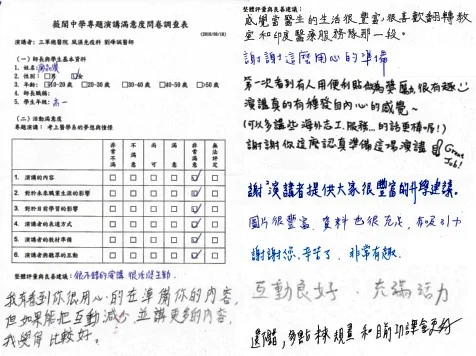 薇閣中學專題演講滿意度問卷調查表
(2016/08/18)
演講者:三軍總醫院 風濕免疫科 劉峰誠醫師
(一)師長與學生基本資料
1. 姓名:
2. 性別:□男 ☑女
3. 年齡:☑10-20歲 □20-30歲 □30-40歲 □40-50歲 □50-60歲
4. 師長職稱:
5. 學生年級:高一
(二)活動滿意度
專題演講:考上醫學系的夢想與憧憬
非常不滿意 不滿意 尚可 滿意 非常滿意 無法評定
1. 演講的內容 □ □ □ □ ☑ □
2. 對於未來職業生涯的影響 □ □ □ □ ☑ □
3. 對於目前學習的影響 □ □ □ □ ☑ □
4. 演講者的表達方式 □ □ □ □ ☑ □
5. 演講者的教材準備 □ □ □ □ ☑ □
6. 演講者與聽眾的互動 □ □ □ □ ☑ □
整體評量與良善建議:很不錯的演講 很活潑生動
我有看到你很用心的在準備你的內容,
但如果能把互動減少 並講更多的內容,
我覺得比較好。
整體評量與良善建議:
感覺當醫生的生活很豐富,很喜歡翻轉教
室和印度醫療服務那一段。
謝謝這麼用心的準備
第一次看到有人用便利貼做為獎勵,很有趣
演講真的有種發自內心的感覺~
(可以多講些海外志工、服務...的話更棒喔!)
謝謝你這麼認真準備這場演講 Great Job!
謝謝演講者提供大家很豐富的升學建議。
圖片很豐富,資料也很充足,有吸引力
謝謝您,辛苦了,非常有趣.
互動良好、充滿活力
還可以,多點校規畫和時功課會更好